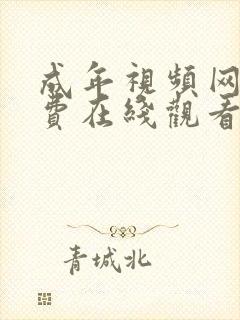 成年視頻网
費在綫觀看
青城北